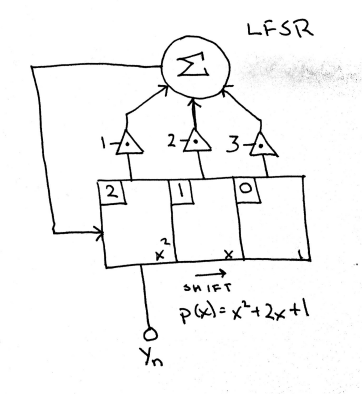 LFSR
Σ
1 2 3
2 1 0
x² x 1
SHIFT
p(x)=x²+2x+1
Yn